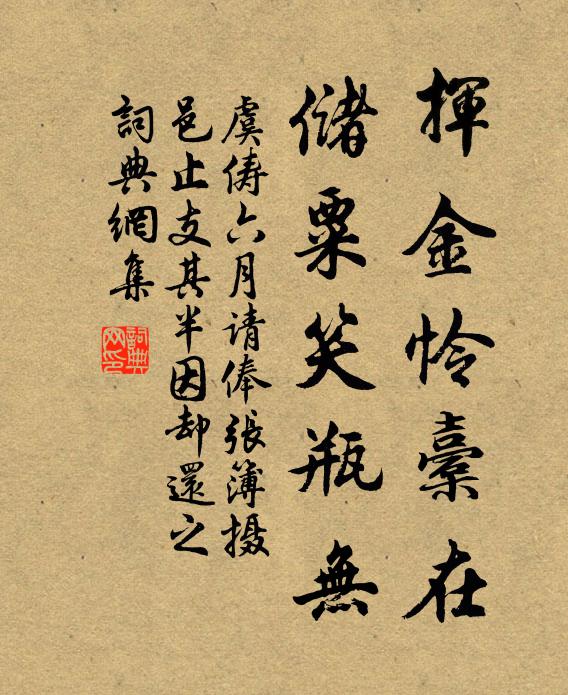 揮金怜橐在
儲粟笑瓶無
虞俦六月请俸張簿摄
邑止支其半因却還之
詞典網集
詞典
网印